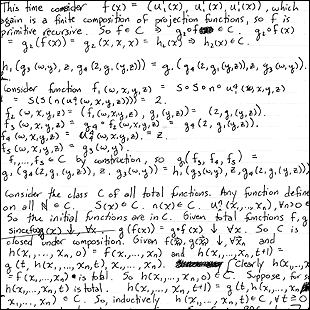 This time consider f(x) = (u¹₁(x), u¹₁(x), u¹₁(x)), which
again is a finite composition of projection functions, so f is
primitive recursive. So f ∈ C ⇒ g₂∘f ∈ C. g₂∘f
= g₂(f(x)) = g₂(x, x, x) = h₂(x) ⇒ h₂(x) ∈ C.
h₁(g₃(w,y), z, g₄(2, g₁(y,z))) = g₁(g₄(2, g₁(y,z)), z, g₃(w,y)).
Consider function f₁(w,x,y,z) = S∘S∘n∘u
= S(S(n(u(w,x,y,z)))) = 2.
f₂(w,x,y,z) = (f₁(w,x,y,z), g₁(y,z)) = (2, g₁(y,z)).
f₃(w,x,y,z) = g₄∘f₂(w,x,y,z) = g₄(2, g₁(y,z)).
f₄(w,x,y,z) = u(w,x,y,z) = z.
f₅(w,x,y,z) = g₃(w,y).
f₁,...,f₅ ∈ C by construction, so g₁(f₃, f₄, f₅) =
g₁(g₄(2, g₁(y,z)), z, g₃(w,y)) = h₁(g₃(w,y), z, g₄(2, g₁(y,z)))
Consider the class C of all total functions. Any function define
on all N ∈ C. S(x) ∈ C. n(x) ∈ C. (x₁,...,xₙ), ∀n>0
So the initial functions are in C. Given total functions f, g
since f(x)↓, ∀x g(f(x)) = g∘f(x) ↓ ∀x. So C is
closed under composition. Given f(x), g(x)↓, ∀x and
h(x₁,...,xₙ,0) = f(x₁,...,xₙ) and h(x₁,...,xₙ,t+1) =
g(t, h(x₁,...,xₙ,t), x₁,...,xₙ). Clearly h(x₁,...
= f(x₁,...,xₙ) is total. So h(x₁,...,xₙ,0) ∈ C. Suppose, for
h(x₁,...,xₙ,t) is total. h(x₁,...,xₙ,t+1) = g(t, h(x₁,...,xₙ
x₁,...,xₙ) ∈ C. So, inductively h(x₁,...,xₙ,t) ∈ C, ∀t≥0